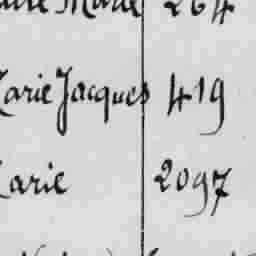 Marie 264
Marie Jacques 419
Marie 2097